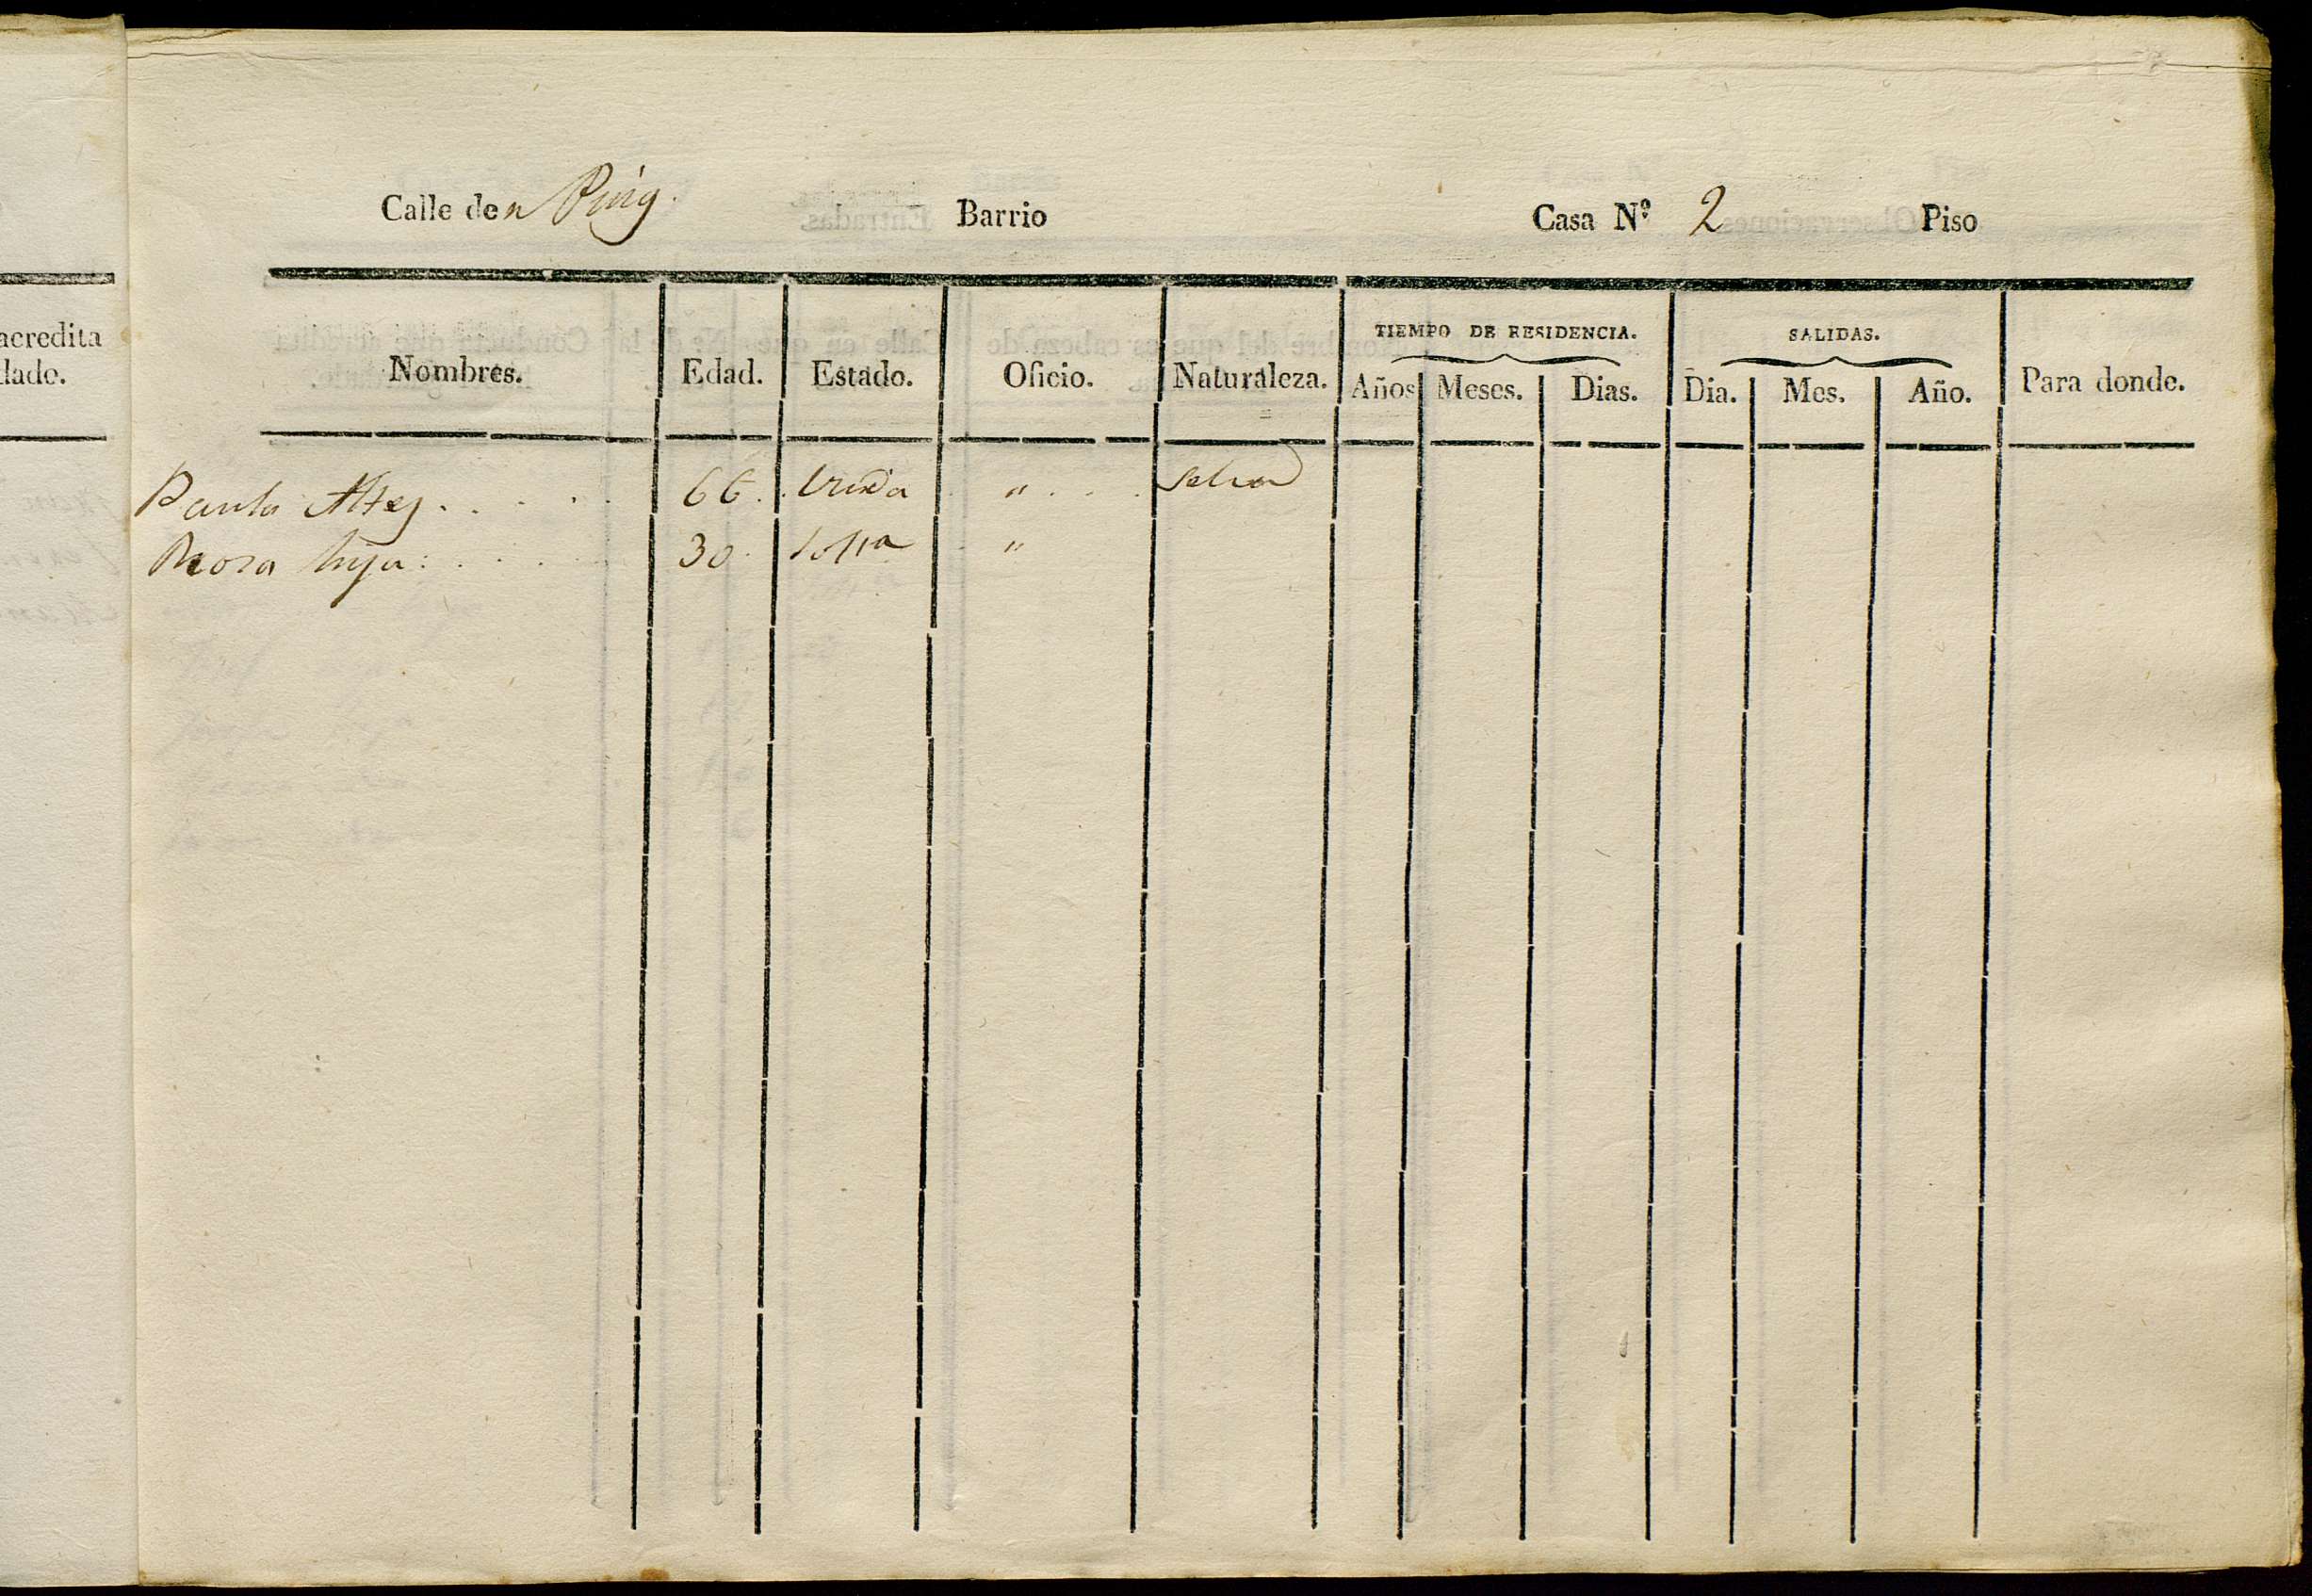 acredita
dado.
Calle den Puig. Barrio Casa Nº 2 Piso
TIEMPO DE RESIDENCIA. SALIDAS.
Nombres. Edad. Estado. Oficio. Naturaleza. Años Meses. Dias. Dia. Mes. Año. Para donde.
Paula Altes 66. Viuda "
Rosa hija 30 Solra "